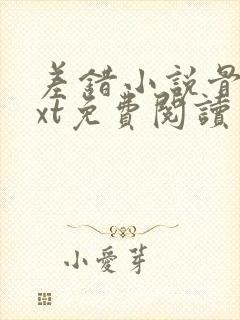 差錯小説骨
xt免費閱讀
小愛芽